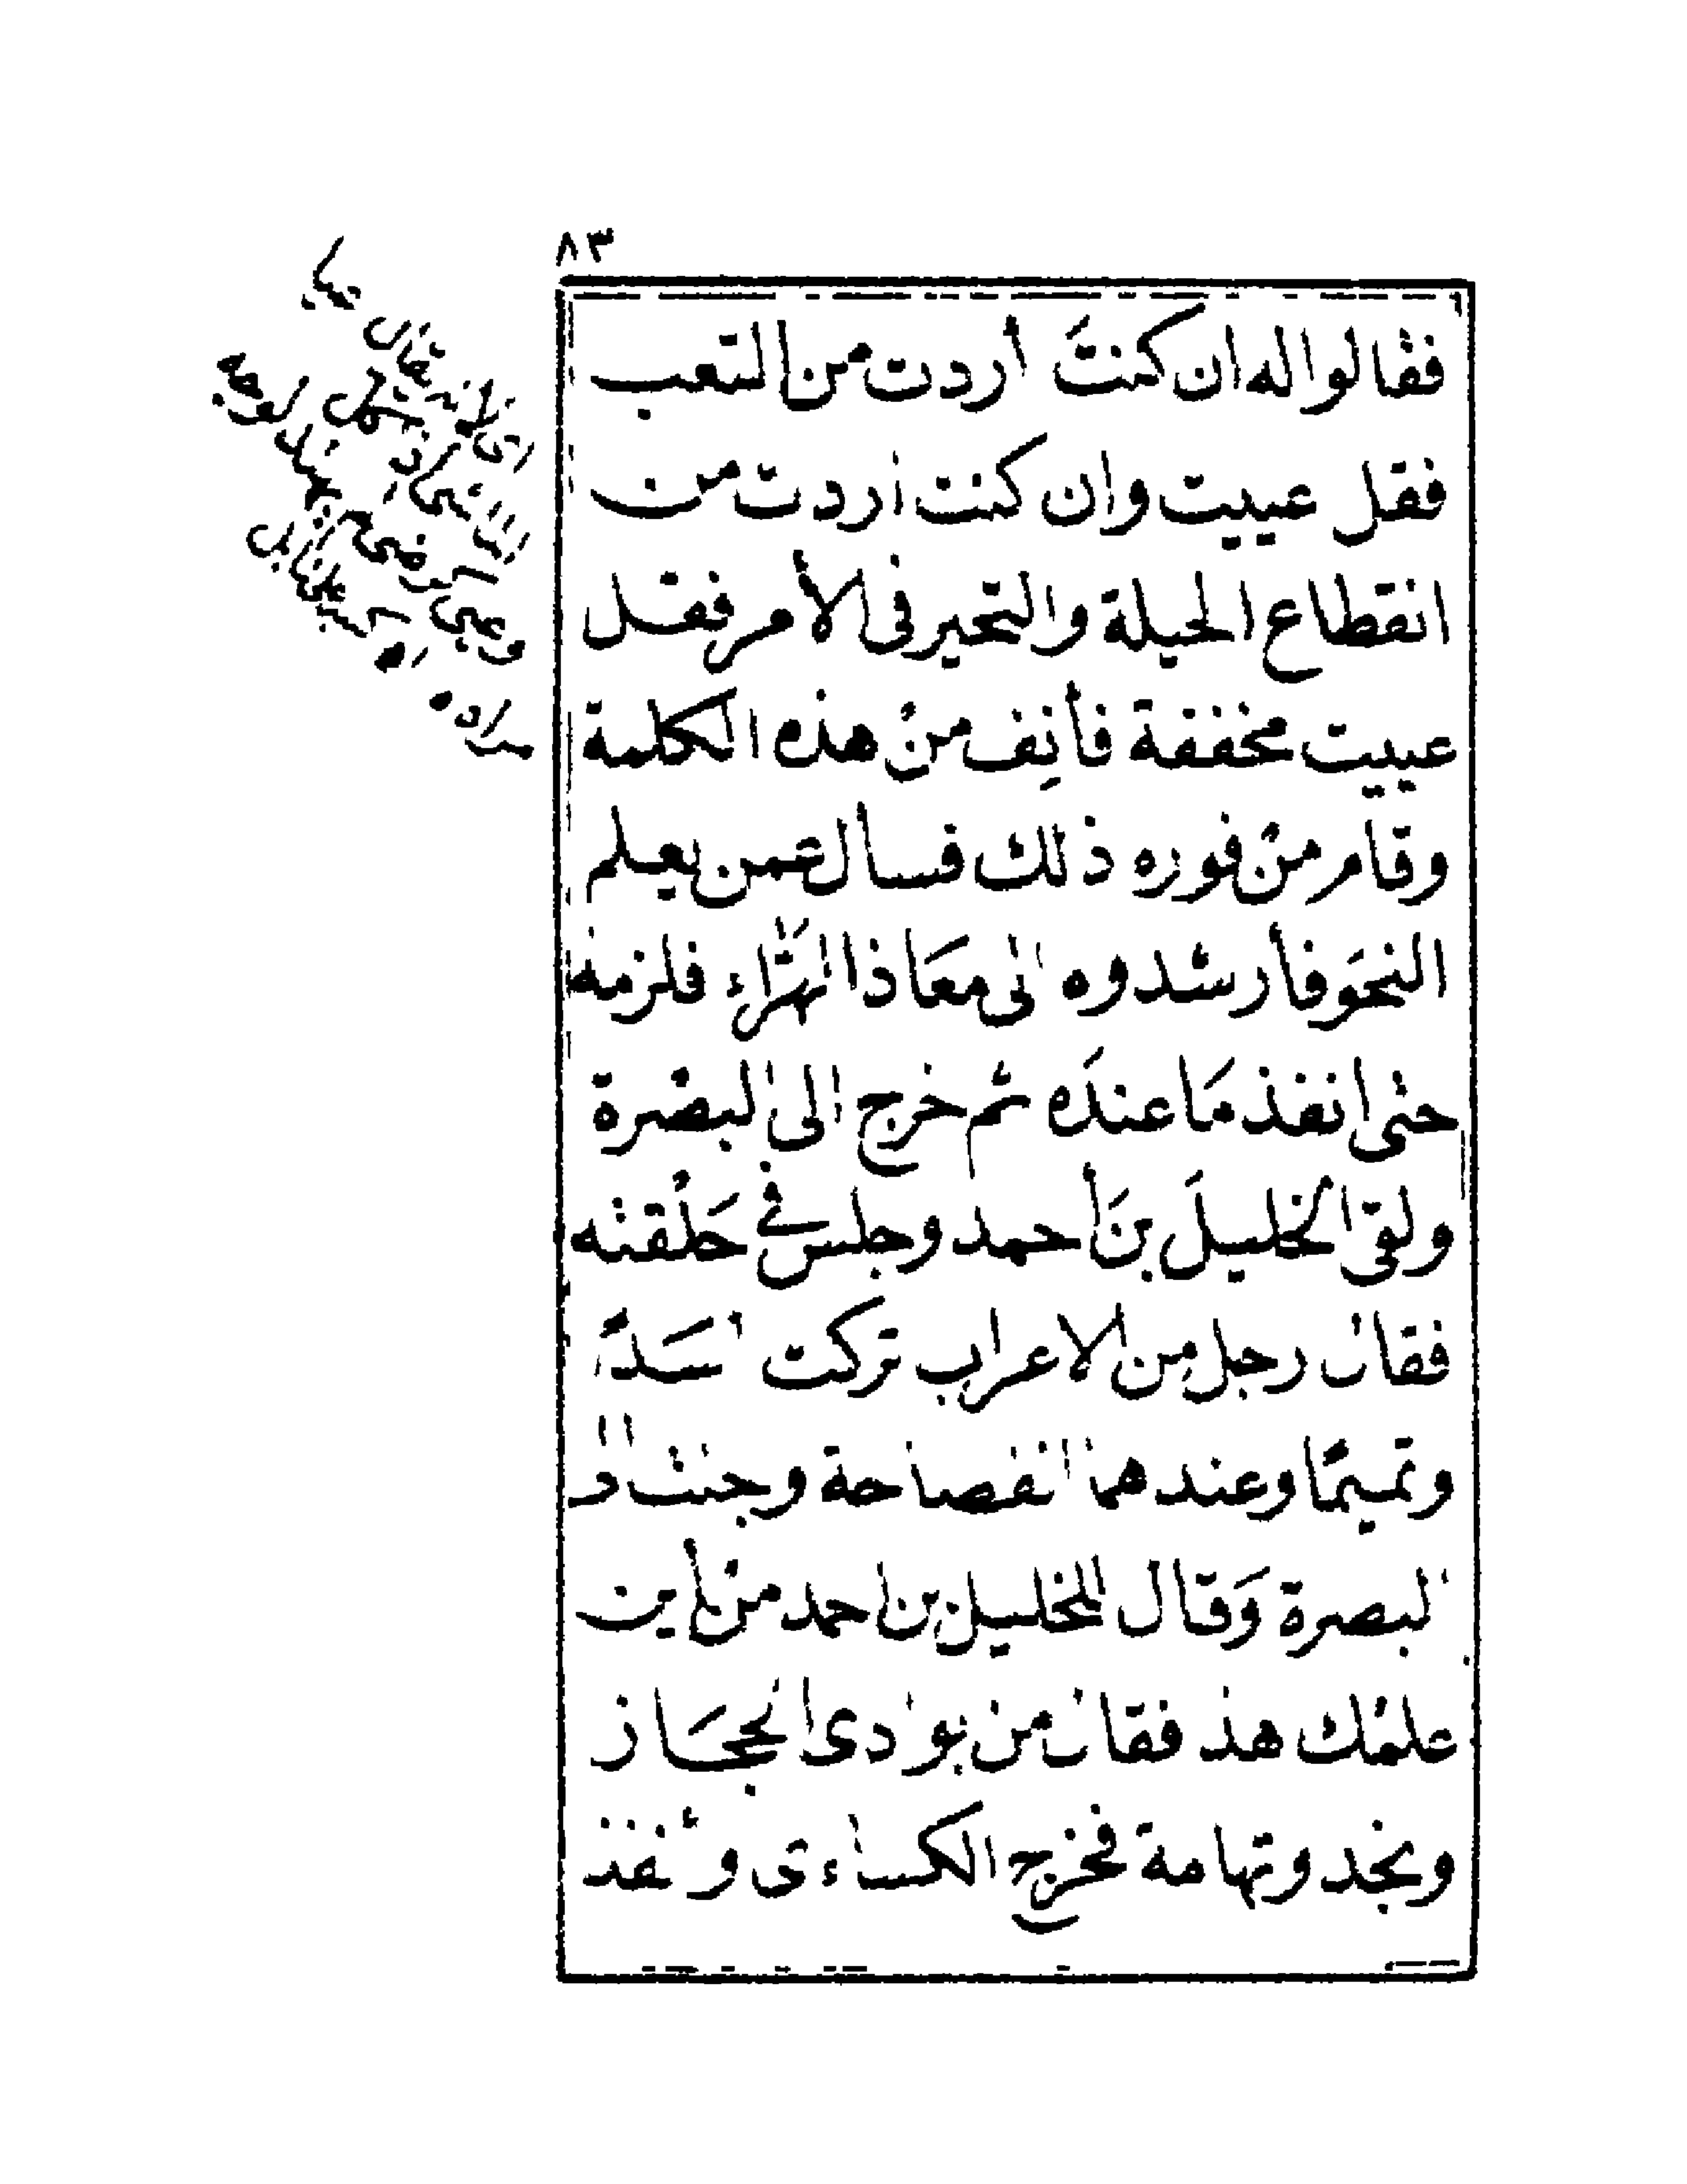 ٨٣
فقالوا له ان كنتَ أردت من التعب
فقل عييت وان كنت أردت من
انقطاع الحيلة والتحير فى الأمر فقل
عييت مخففة فأنِف منْ هذه الكلمة
وقام منْ فوره ذلك فسأل عمن يعلم
النحَو فأرشدوه الى معَاذ الهَرَّاء فلزمه
حتى انفذ مَا عندَه ثم خرج الى البصْرة
ولقى الخليلَ بنَ أحمد وجلس في حَلْقته
فقال رجل من الاعراب تركت اسَدًا
وتميمًا وعندهما الفصاحة وجئت الى
البصرة وَقال للخليل بن احمد من أين
علمك هذا فقال من بوادى الحجَاز
ونجد وتهامة فخرج الكساءى وأنفذ